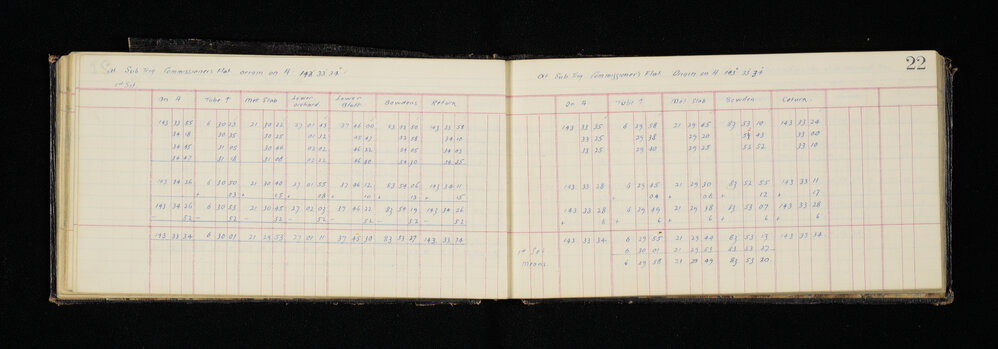 at Sub Trig Commissioner's Flat origin on A 143° 33' 34"
1st Set
On A Tube T Met Slab Lower orchard Lower Bluff Bowdens Return
143 33 55 6 30 23 21 30 22 27 01 43 37 46 00 83 53 50 143 33 58
34 18 30 35 30 25 01 32 45 47 53 58 34 10
34 45 31 05 30 46 02 02 46 22 54 05 34 03
34 47 31 18 31 08 02 22 46 40 54 30 34 35
143 34 26 6 30 50 21 30 40 27 01 55 37 46 12 83 54 06 143 34 11
+ 03 + 05 + 08 + 10 + 13 + 15
143 34 26 6 30 53 21 30 45 27 02 03 37 46 22 83 54 19 143 34 26
— 52 — 52 — 52 — 52 — 52 — 52 — 52
143 33 34 6 30 01 21 29 53 27 01 11 37 45 30 83 53 27 143 33 34
22
at Sub Trig Commissioner's Flat Origin on A 143° 33' 34"
On A Tube T Met Slab Bowden Return
143 33 35 6 29 58 21 29 45 83 53 10 143 33 24
33 25 29 38 29 20 54 43 33 00
33 25 29 40 29 25 52 52 33 10
143 33 28 6 29 45 21 29 30 83 52 55 143 33 11
+ 04 + 08 + 12 + 17
143 33 28 6 29 49 21 29 38 83 53 07 143 33 28
+ 6 + 6 + 6 + 6 + 6
143 33 34 6 29 55 21 29 44 83 53 13 143 33 34
1st Set 6 30 01 21 29 53 83 53 27
means 6 29 58 21 29 49 83 53 20